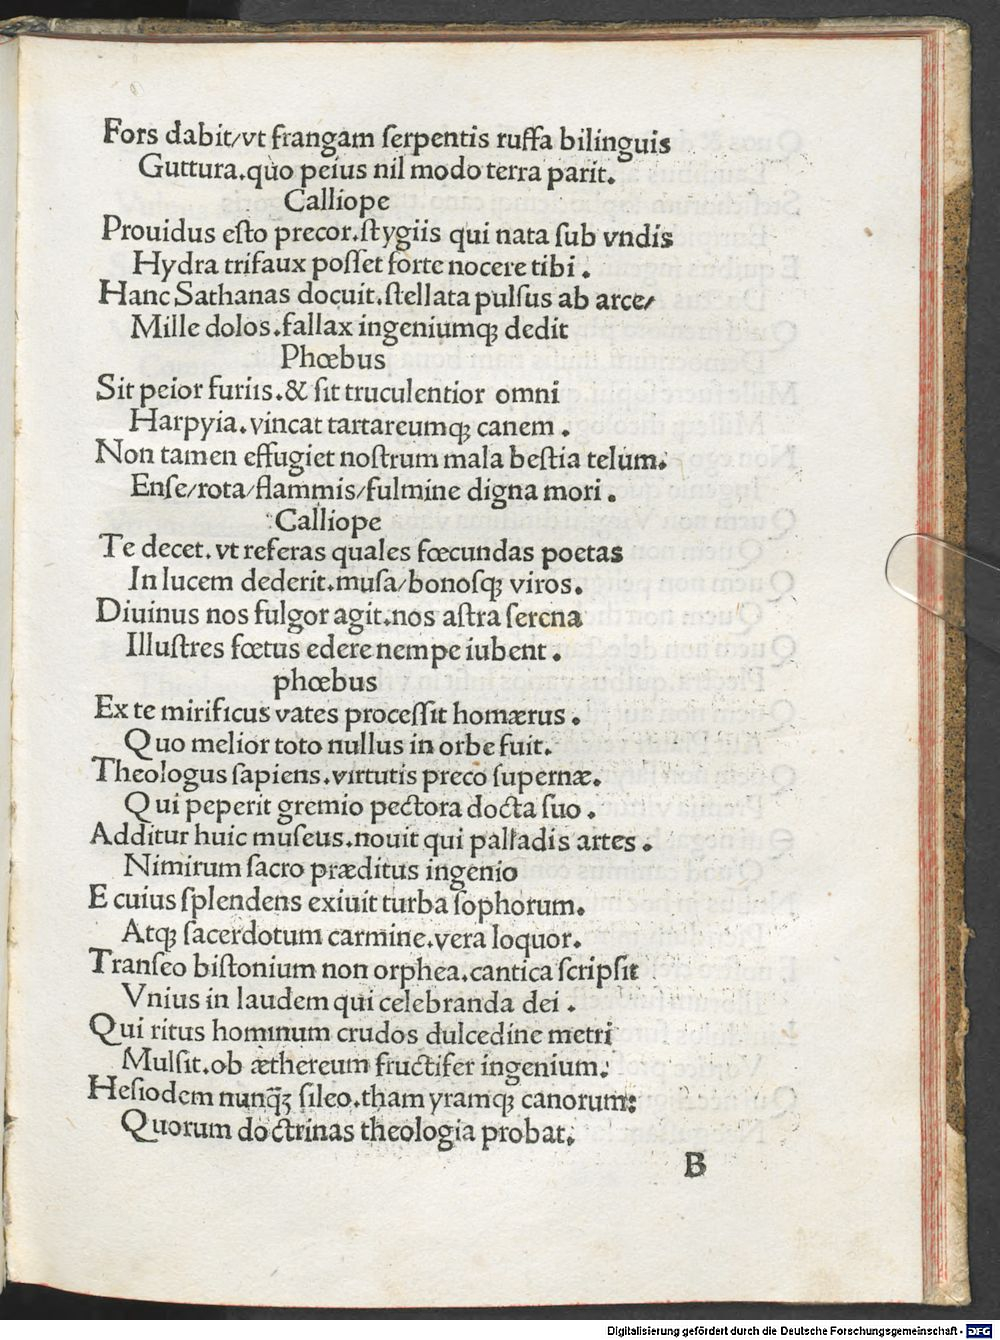 Fors dabit/vt frangam ſerpentis ruffa bilinguis
Guttura.quo peius nil modo terra parit.
Calliope
Prouidus eſto precor.ſtygiis qui nata ſub vndis
Hydra trifaux poſſet forte nocere tibi.
Hanc Sathanas docuit.ſtellata pulſus ab arce/
Mille dolos.fallax ingeniumqꝫ dedit
Phœbus
Sit peior furiis.& ſit truculentior omni
Harpyia.vincat tartareumqꝫ canem.
Non tamen effugiet noſtrum mala beſtia telum.
Enſe/rota/flammis/fulmine digna mori.
Calliope
Te decet.vt referas quales fœcundas poetas
In lucem dederit.muſa/bonoſqꝫ viros.
Diuinus nos fulgor agit.nos aſtra ſerena
Illuſtres fœtus edere nempe iubent.
phœbus
Ex te mirificus vates proceſſit homærus.
Quo melior toto nullus in orbe fuit.
Theologus ſapiens.virtutis preco ſupernæ.
Qui peperit gremio pectora docta ſuo.
Additur huic muſeus.nouit qui palladis artes.
Nimirum ſacro præditus ingenio
E cuius ſplendens exiuit turba ſophorum.
Atqꝫ ſacerdotum carmine.vera loquor.
Tranſeo biſtonium non orphea.cantica ſcripſit
Vnius in laudem qui celebranda dei.
Qui ritus hominum crudos dulcedine metri
Mulſit.ob æthereum fructifer ingenium:
Heſiodem nunq̃ꝫ ſileo.thamyramqꝫ canorum:
Quorum doctrinas theologia probat.
B
Digitalisierung gefördert durch die Deutsche Forschungsgemeinschaft - DFG